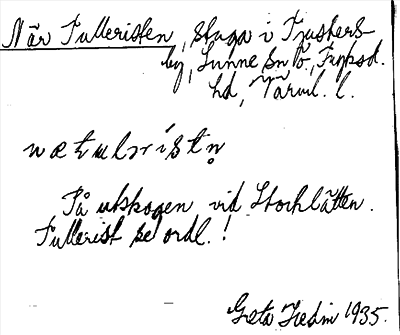 När Fulleristen, stuga i Tjusters-
by, Sunne sn ö., Fryksd.
hd, Värml. l.
På utskogen vid Stocklätten.
Fullerist se ordl.!
Greta Hedin 1935.